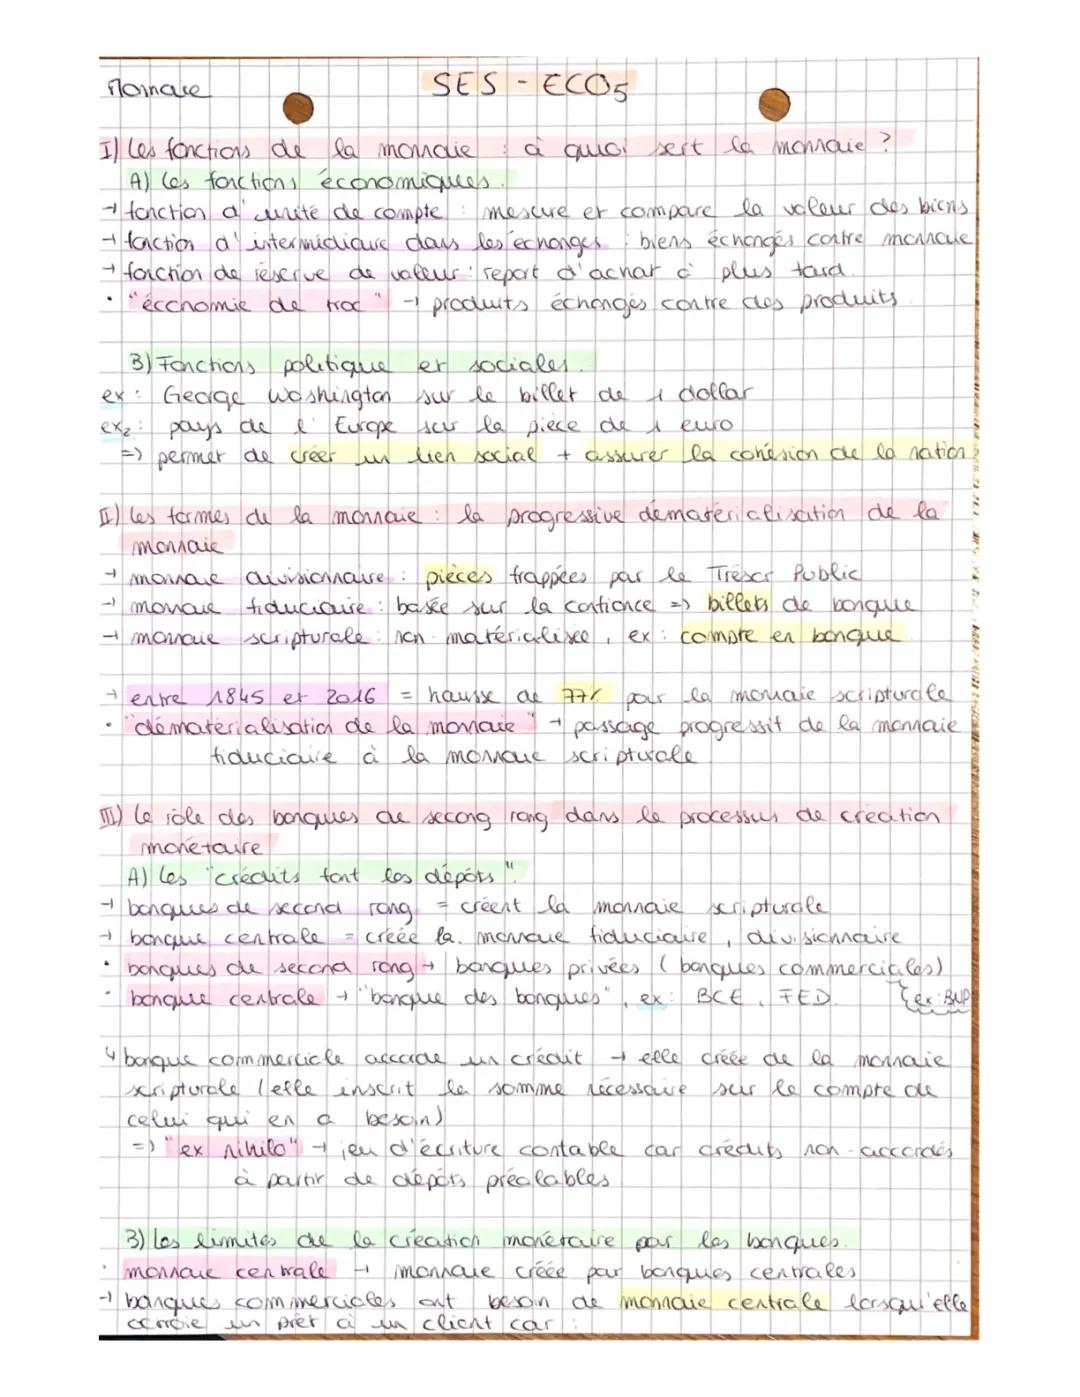 Monnaie SES - ECO5
I) Les fonctions de la monnaie : à quoi sert la monnaie ?
A) Les fonctions économiques.
→ fonction d'unité de compte : mesure et compare la valeur des biens
→ fonction d'intermédiaire dans les échanges : biens échangés contre monnaie
→ fonction de réserve de valeur : report d'achat à plus tard
• "économie de troc" → produits échangés contre des produits.
B) Fonctions politique et sociales.
ex : George Washington sur le billet de 1 dollar
ex2 : pays de l'Europe sur la pièce de 1 euro
=> permet de créer un lien social + assurer la cohésion de la nation
II) Les formes de la monnaie : la progressive dématérialisation de la
monnaie
→ monnaie divisionnaire : pièces frappées par le Trésor Public
→ monnaie fiduciaire : basée sur la confiance => billets de banque
→ monnaie scripturale : non matérialisée, ex : compte en banque
→ entre 1845 et 2016 = hausse de 77% pour la monnaie scripturale
• "dématérialisation de la monnaie" → passage progressif de la monnaie
fiduciaire à la monnaie scripturale
III) Le rôle des banques de second rang dans le processus de création
monétaire
A) Les "crédits font les dépôts".
→ banques de second rang = créent la monnaie scripturale
→ banque centrale = créée la monnaie fiduciaire, divisionnaire
• banques de second rang → banques privées (banques commerciales)
• banque centrale → "banque des banques", ex : BCE, FED. ex : BNP
↳ banque commerciale accorde un crédit → elle créée de la monnaie
scripturale (elle inscrit la somme nécessaire sur le compte de
celui qui en a besoin)
=> "ex nihilo" → jeu d'écriture contable car crédits non-accordés
à partir de dépôts préalables
B) Les limites de la création monétaire par les banques.
• monnaie centrale → monnaie créée par banques centrales
→ banques commerciales ont besoin de monnaie centrale lorsqu'elle
octroie un prêt à un client car :